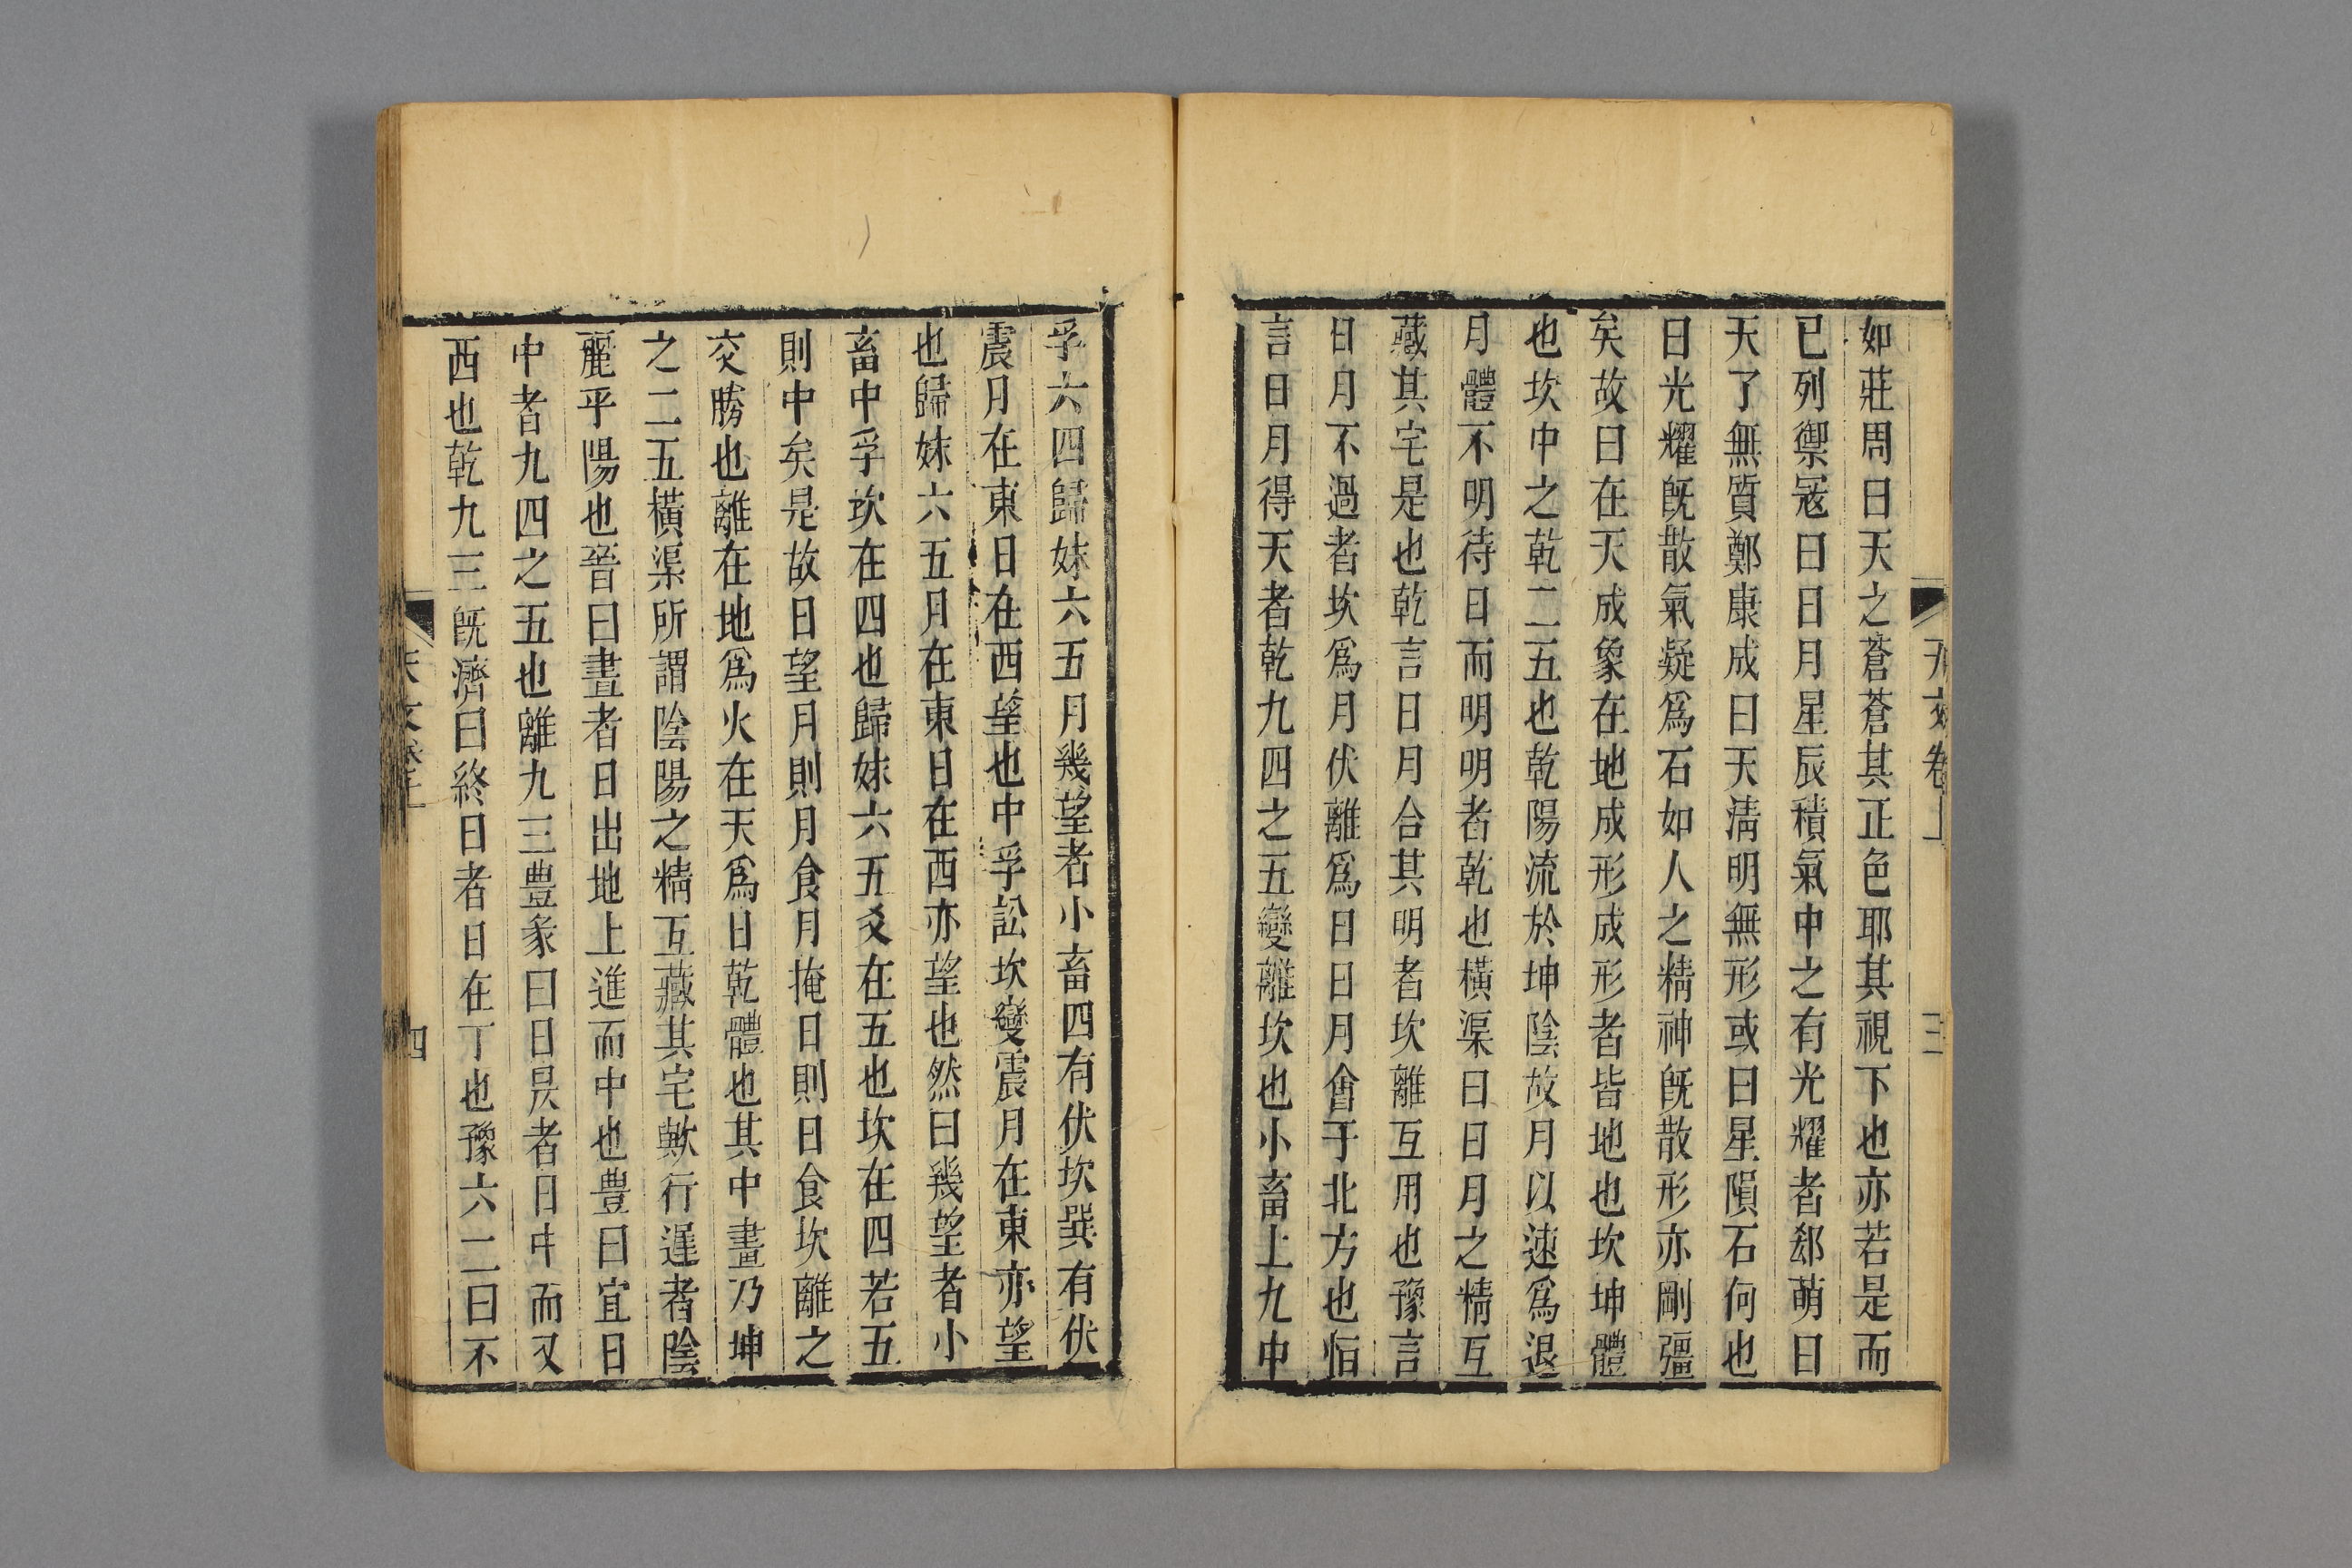 如莊周曰天之蒼蒼其正色耶其視下也亦若是而
已列禦冦曰日月星辰積氣中之有光耀者郄萌曰
天了無質鄭康成曰天清明無形或曰星隕石何也
曰光耀旣散氣凝爲石如人之精神旣散形亦剛彊
矣故曰在天成象在地成形成形者皆地也坎坤體
也坎中之乾二五也乾陽流於坤陰故月以速爲退
月體不明待日而明明者乾也橫渠曰日月之精互
藏其宅是也乾言日月合其明者坎離互用也豫言
日月不過者坎爲月伏離爲日日月會于北方也恒
言日月得天者乾九四之五變離坎也小畜上九中
孚六四歸妹六五月幾望者小畜四有伏坎巽有伏
震月在東日在西望也中孚訟坎變震月在東亦望
也歸妹六五月在東日在西亦望也然曰幾望者小
畜中孚坎在四也歸妹六五爻在五也坎在四若五
則中矣是故日望月則月食月掩日則日食坎離之
交勝也離在地爲火在天爲日乾體也其中畫乃坤
之二五橫渠所謂陰陽之精互藏其宅歟行遲者陰
麗乎陽也晉曰晝者日出地上進而中也豊曰宜日
中者九四之五也離九三豊彖曰日昃者日中而又
西也乾九三旣濟曰終日者日在丁也豫六二曰不
四